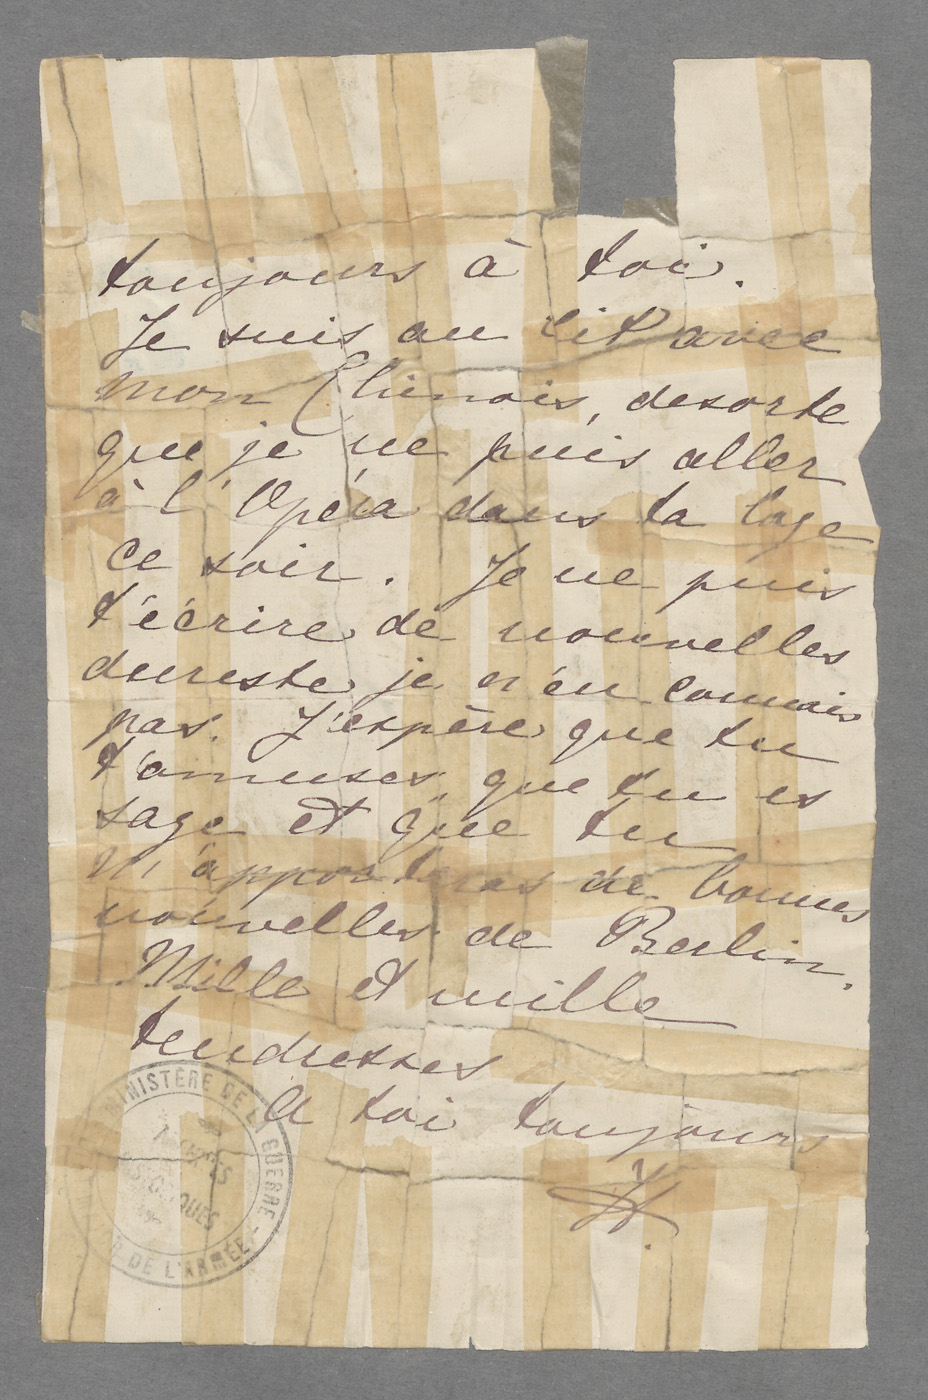 toujours à toi.
Je suis au lit avec
mon Chinois, desorte
que je ne puis aller
à l'Opéra dans ta loge
ce soir. Je ne puis
t'écrire de nouvelles
dureste je n'en connais
pas. J'espère que tu
t'amuses, que tu es
sage et que tu
m'apporteras de bonnes
nouvelles de Berlin.
Mille et mille
tendresses
A toi toujours
MINISTÈRE DE LA GUERRE
DE L'ARMÉE